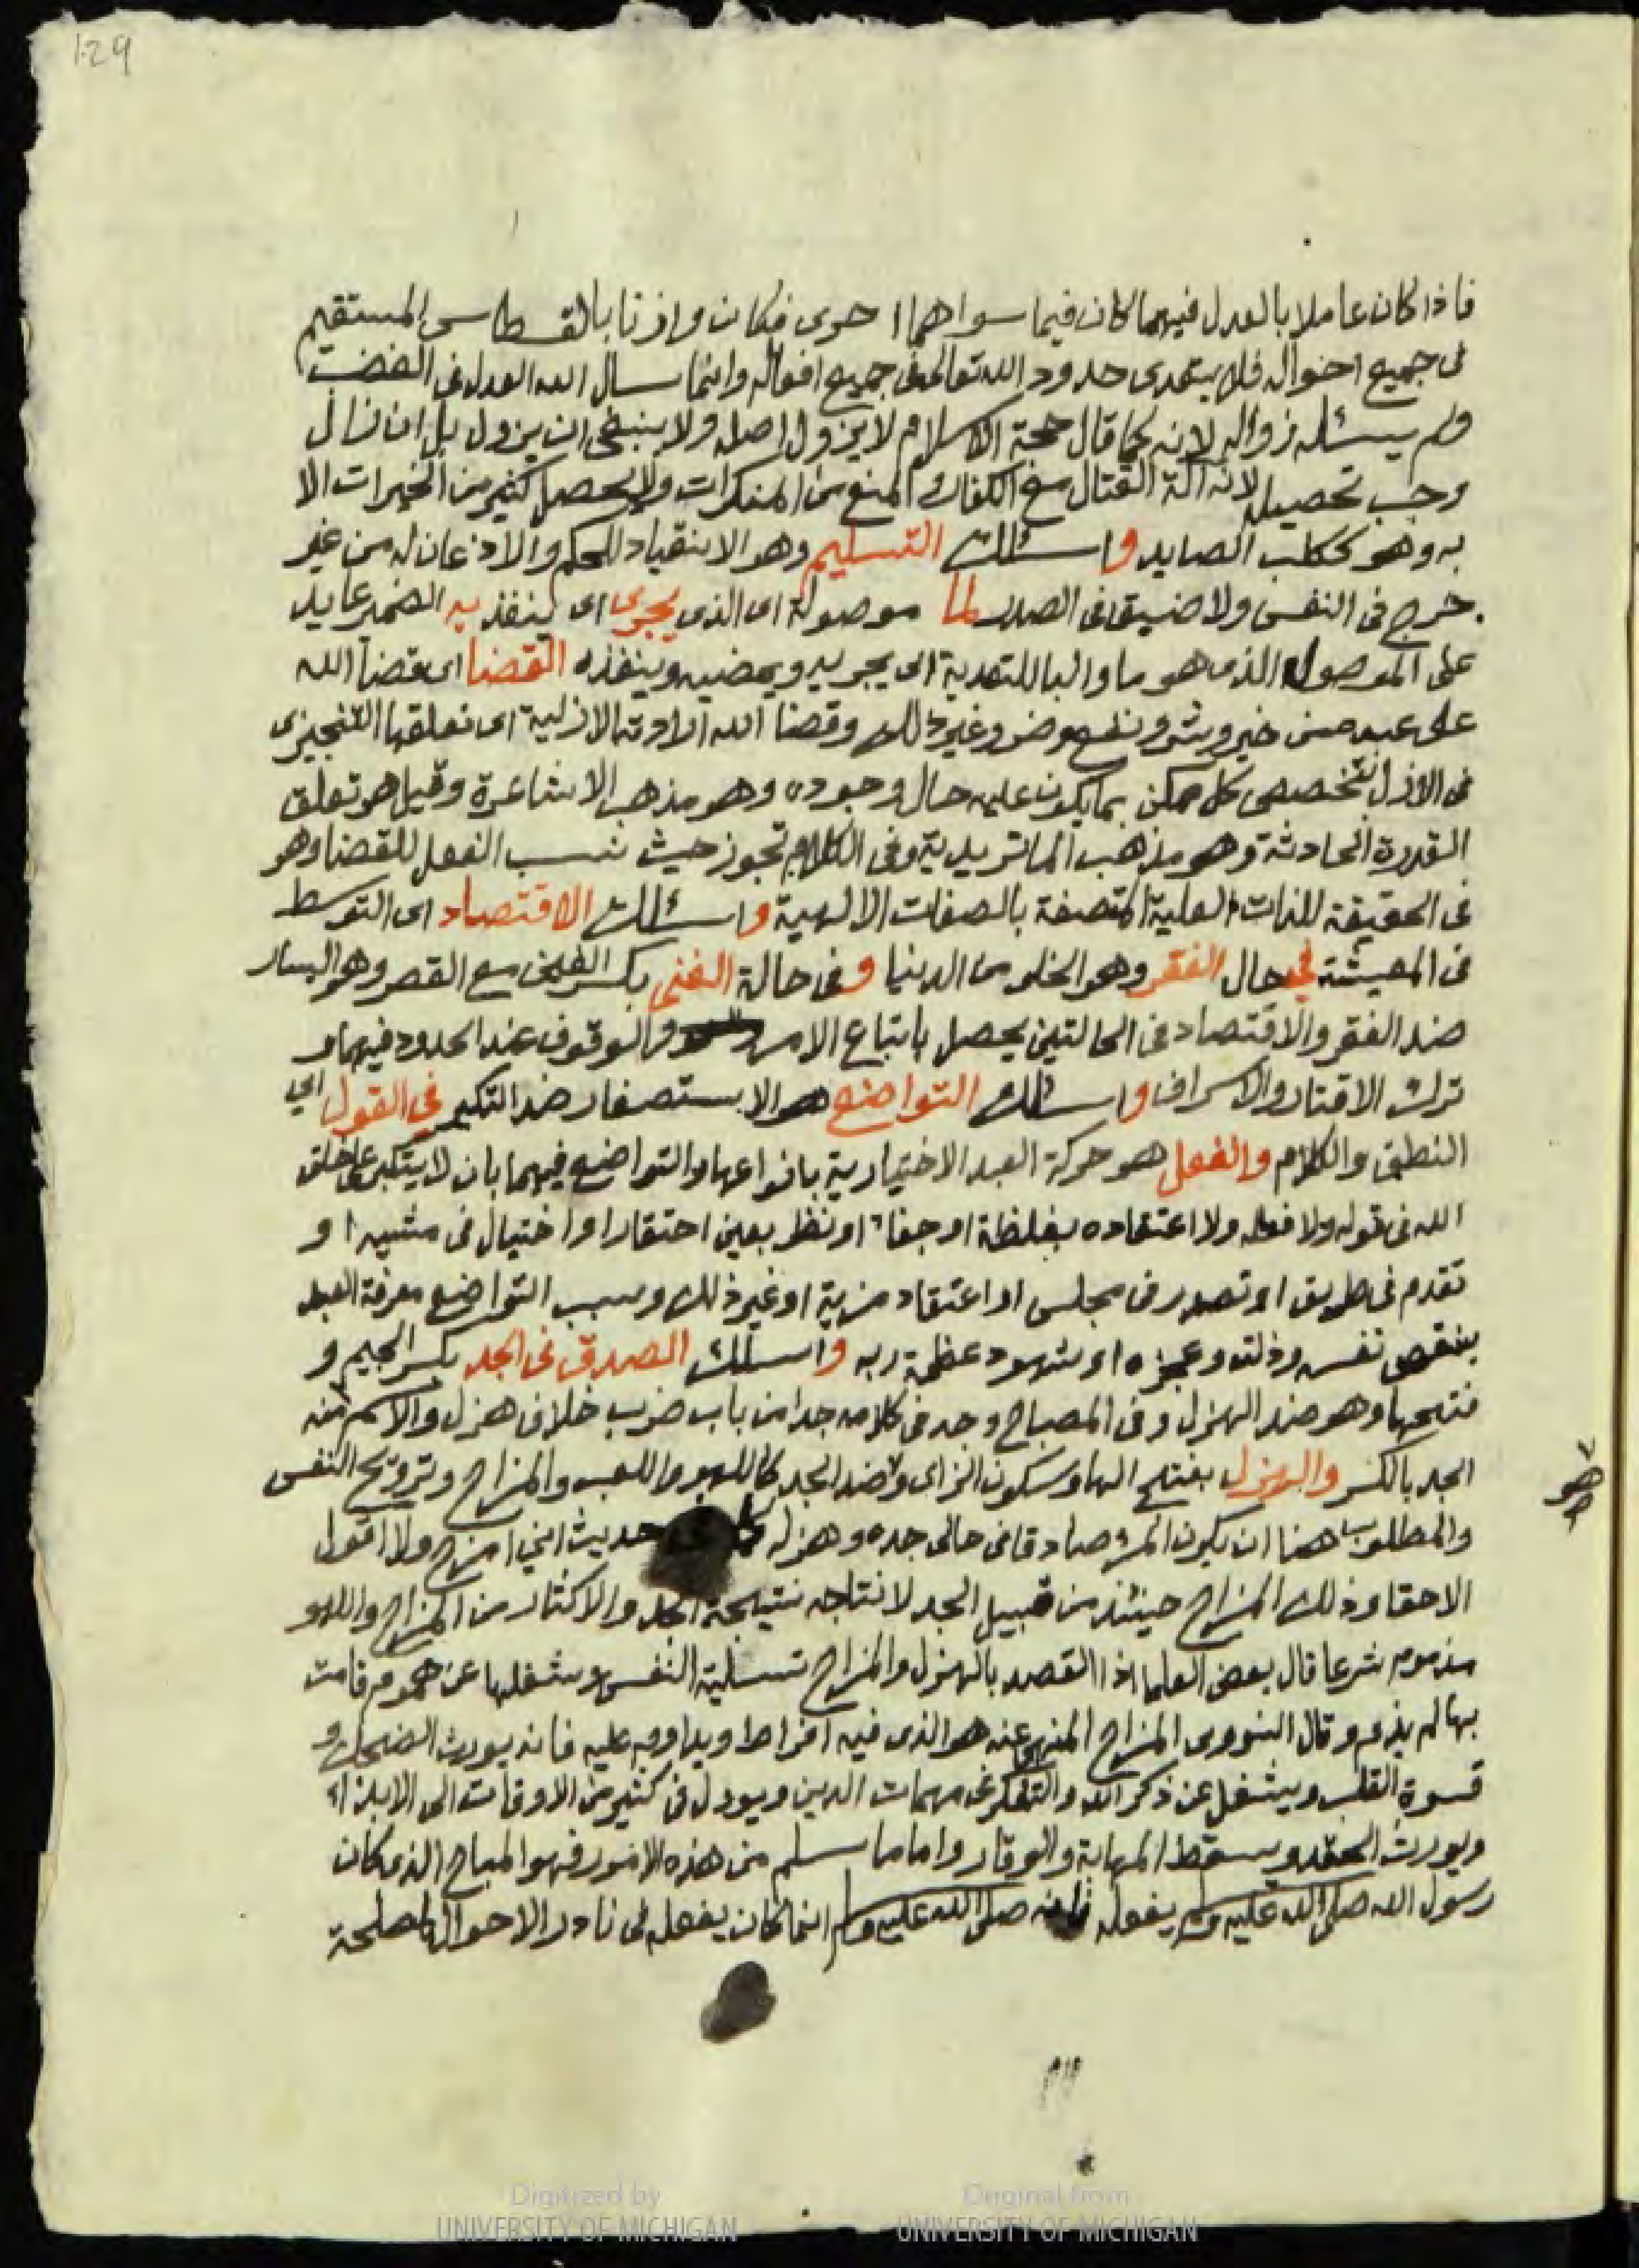 129
فاذا كان عاملا بالعدل فيهما كان فيما سواهما احرى فكان وازنا بالقسطاس المستقيم
فى جميع احواله فلا يتعدى حدود الله تعالى فى جميع افعاله وانما سال الله العدل فى الغضب
ولم يسئله زواله لانه كما قال حجة الاسلام لا يزول اصله ولا ينبغى ان يزول بل ان زال
وجب تحصيله لانه الة القتال مع الكفار والمنع من المنكرات ولا يحصل كثير من الخيرات الا
به وهو ككلب الصايد واسئلك التسليم وهو الانقياد للحكم والاذعان له من غير
حرج فى النفس ولا ضيق فى الصدر لما موصولة اى الذى يجرى اى ينفذ به الضمير عايد
على الموصول الذى هو ما والبا للتعدية اى يجريه ويمضيه وينفذه القضا اى قضا الله
على عبده من خير وشر ونفع وضر وغير ذلك وقضا الله ارادته الازلية اى تعلقها التنجيزى
فى الازل بتخصيص كل ممكن بما يكون عليه حال وجوده وهو مذهب الاشاعرة وقيل هو تعلق
القدرة الحادثة وهو مذهب الماتريدية وفى الكلام تجوز حيث نسب الفعل للقضا وهو
فى الحقيقة للذات العلية المتصفة بالصفات الالهية واسئلك الاقتصاد اى التوسط
فى المعيشة فى حال الفقر وهو الخلو من الدنيا وفى حالة الغنى بكسر الغين مع القصر وهو اليسار
ضد الفقر والاقتصاد فى الحالتين يحصل باتباع الامر والوقوف عند الحدود فيهما و
ترك الاقتار والاسراف واسئلك التواضع هو الاستصغار ضد التكبر فى القول اي
النطق والكلام والفعل هو حركة العبد الاختيارية بانواعها والتواضع فيهما بان لا يتكبر على خلق
الله فى قوله ولا فعله ولا اعتقاده بغلظة او جفاء او نظر بعين احتقار او اختيال فى مشيه او
تقدم فى طريق او تصدر فى مجلس او اعتقاد مزية او غير ذلك وسبب التواضع معرفة العبد
بنقص نفسه وذلته وعجزه او شهود عظمة ربه واسئلك الصدق فى الجد بكسر الجيم و
فتحها وهو ضد الهزل وفى المصباح وجد فى كلامه جدا من باب ضرب خلاف هزل والاسم منه
الجد بالكسر والهزل بفتح الها وسكون الزاى ضد الجد كاللهو واللعب والمزاح وترويح النفس
هو
والمطلوب هنا ان يكون المرء صادقا فى حالى جده وهزله حديث اني امزح ولا اقول
الا حقا وذلك المزاح حينئذ من قبيل الجد لانتاجه نتيجة الجد والاكثار من المزاح واللهو
مذموم شرعا قال بعض العلما اذا القصد بالهزل والمزاح تسلية النفس وشغلها عن هموم قامت
بها لم يذم وقال النووى المزاح المنهى عنه هو الذى فيه افراط ويداوم عليه فانه يورث الضحك و
قسوة القلب ويشغل عن ذكر الله والتفكر فى مهمات الدين ويودى فى كثير من الاوقات الى الايذاء
ويورث الحقد ويسقط المهابة والوقار واما ما سلم من هذه الامور فهو المباح الذى كان
رسول الله صلى الله عليه وسلم يفعله فانه صلى الله عليه وسلم انما كان يفعله فى نادر الاحوال لمصلحة
Digitized by
UNIVERSITY OF MICHIGAN
Original from
UNIVERSITY OF MICHIGAN